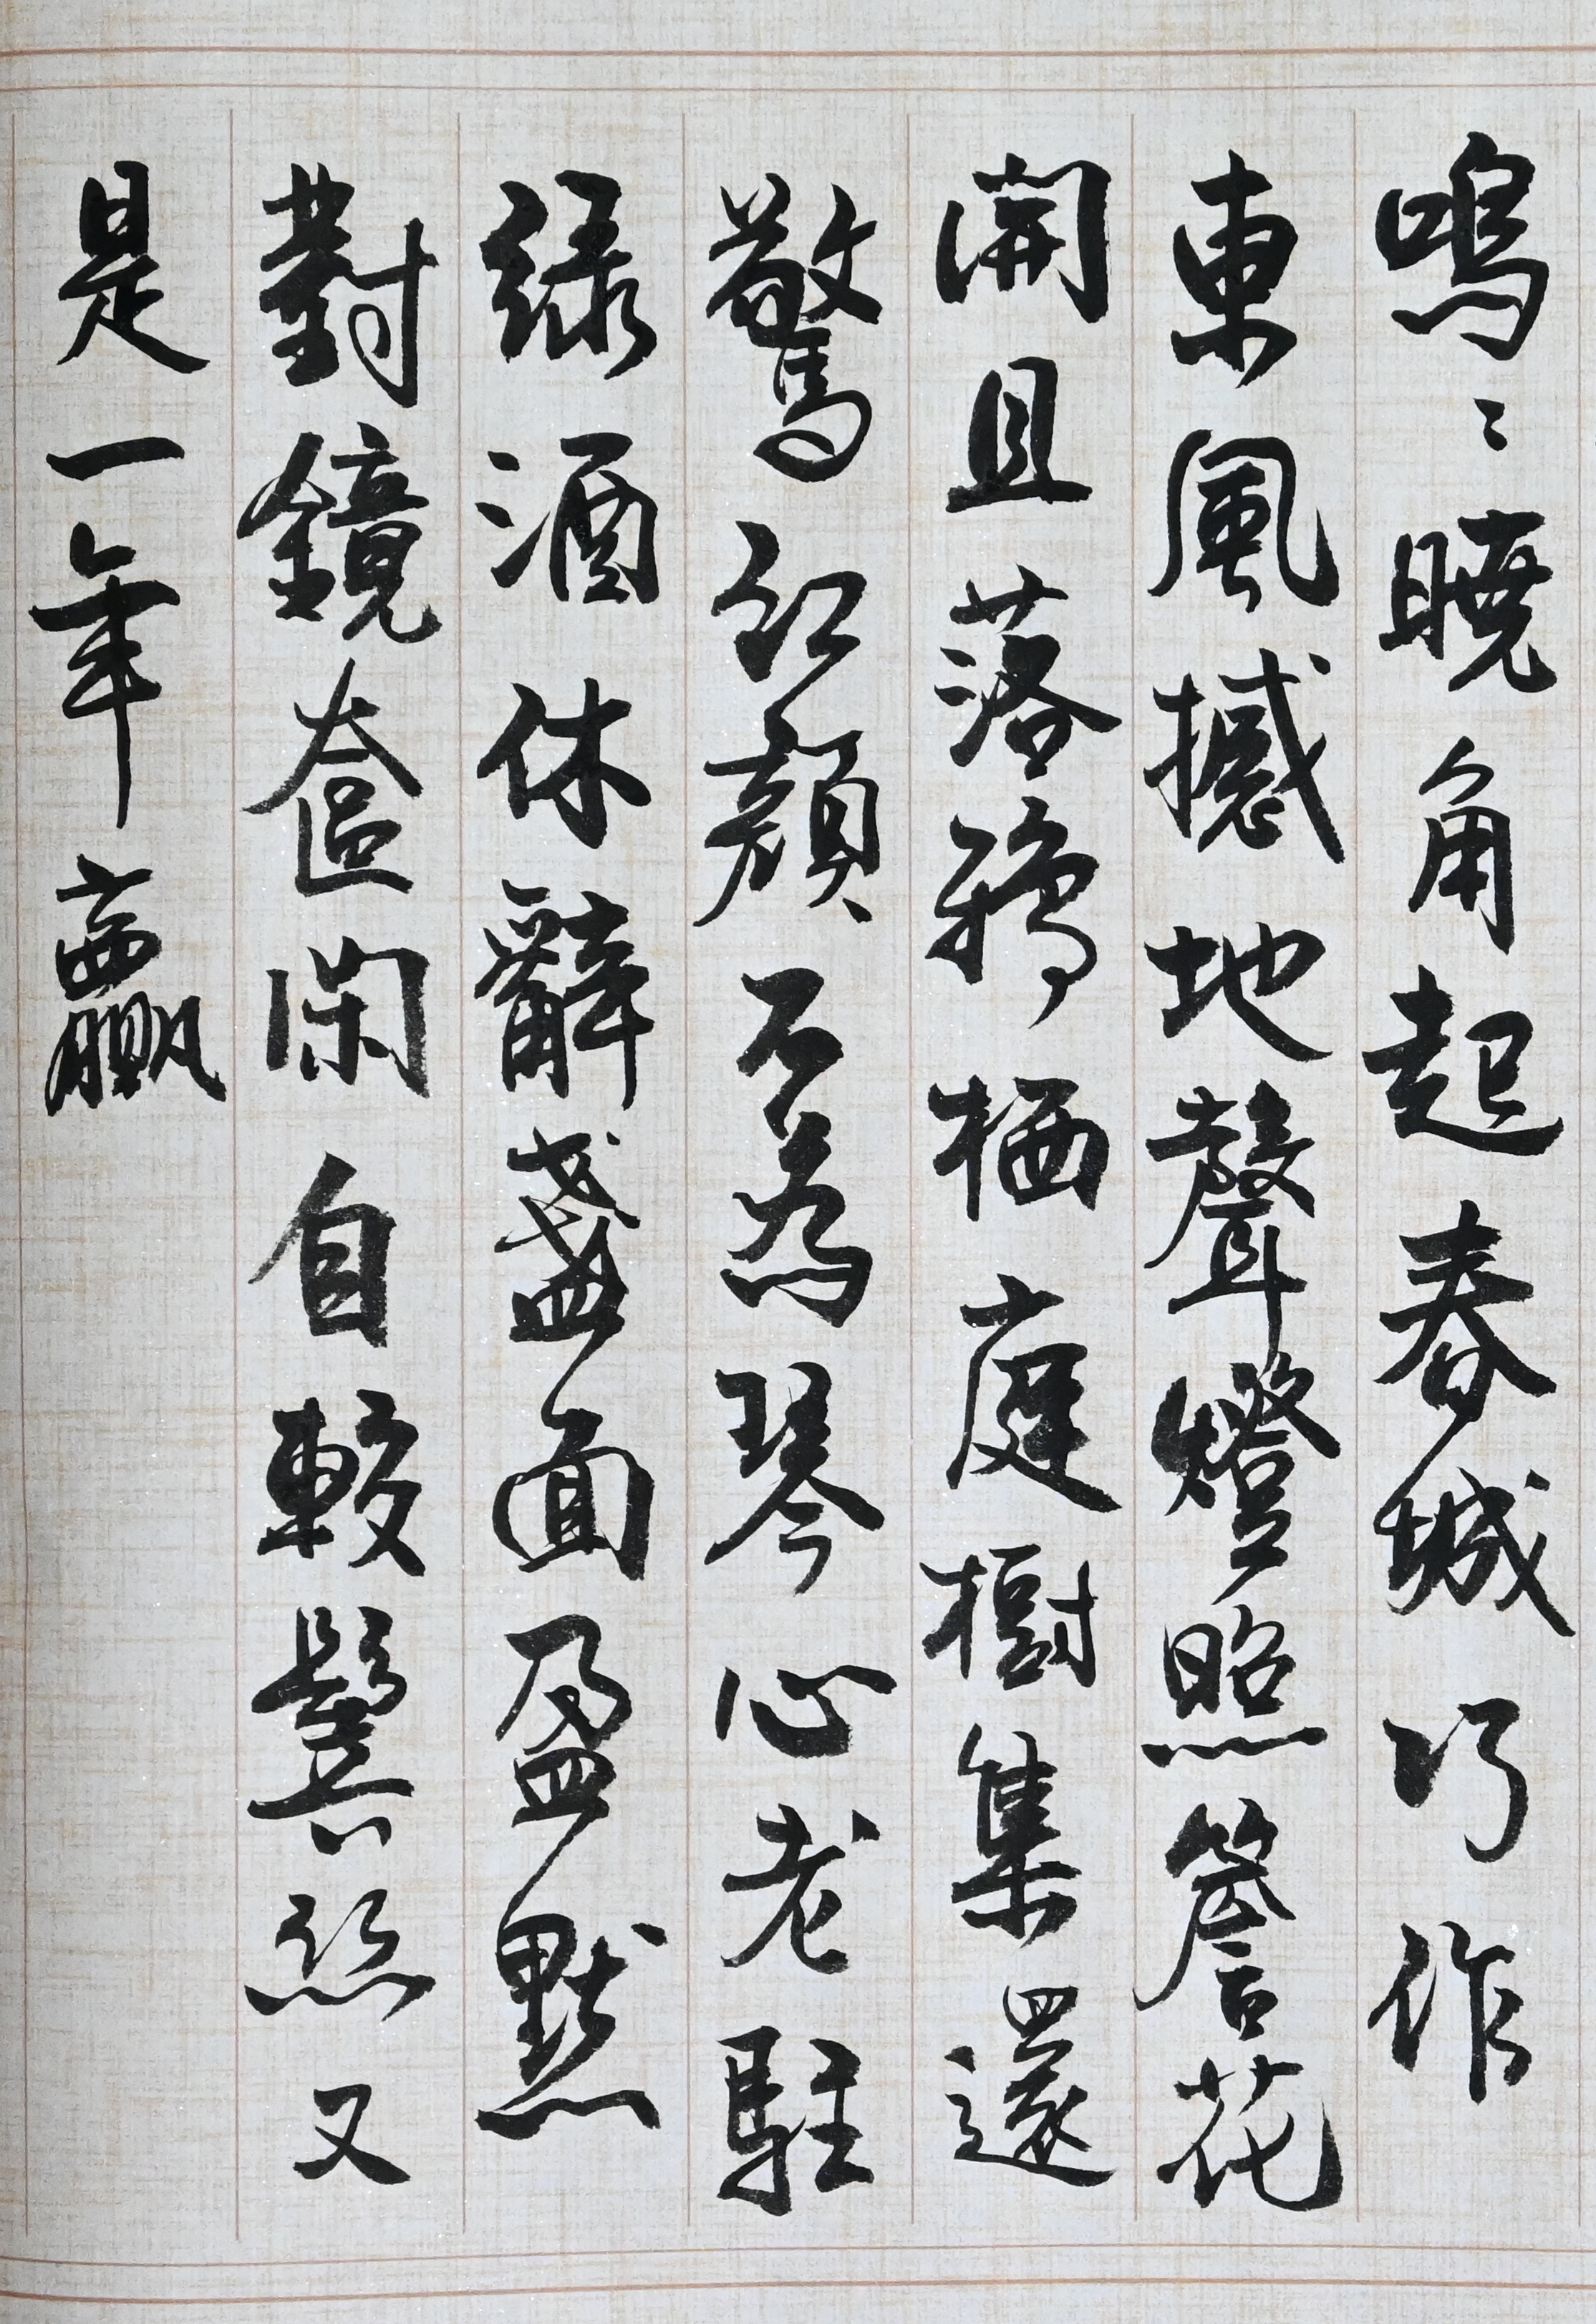 鳴〻曉角起春城巧作
東風撼地聲燈照簷花
開且落鴉栖庭樹集還
驚紅顏不為琴心老駐
綠酒休辭盞面盈默
對鏡奩閑自較鬢絲又
是一年贏